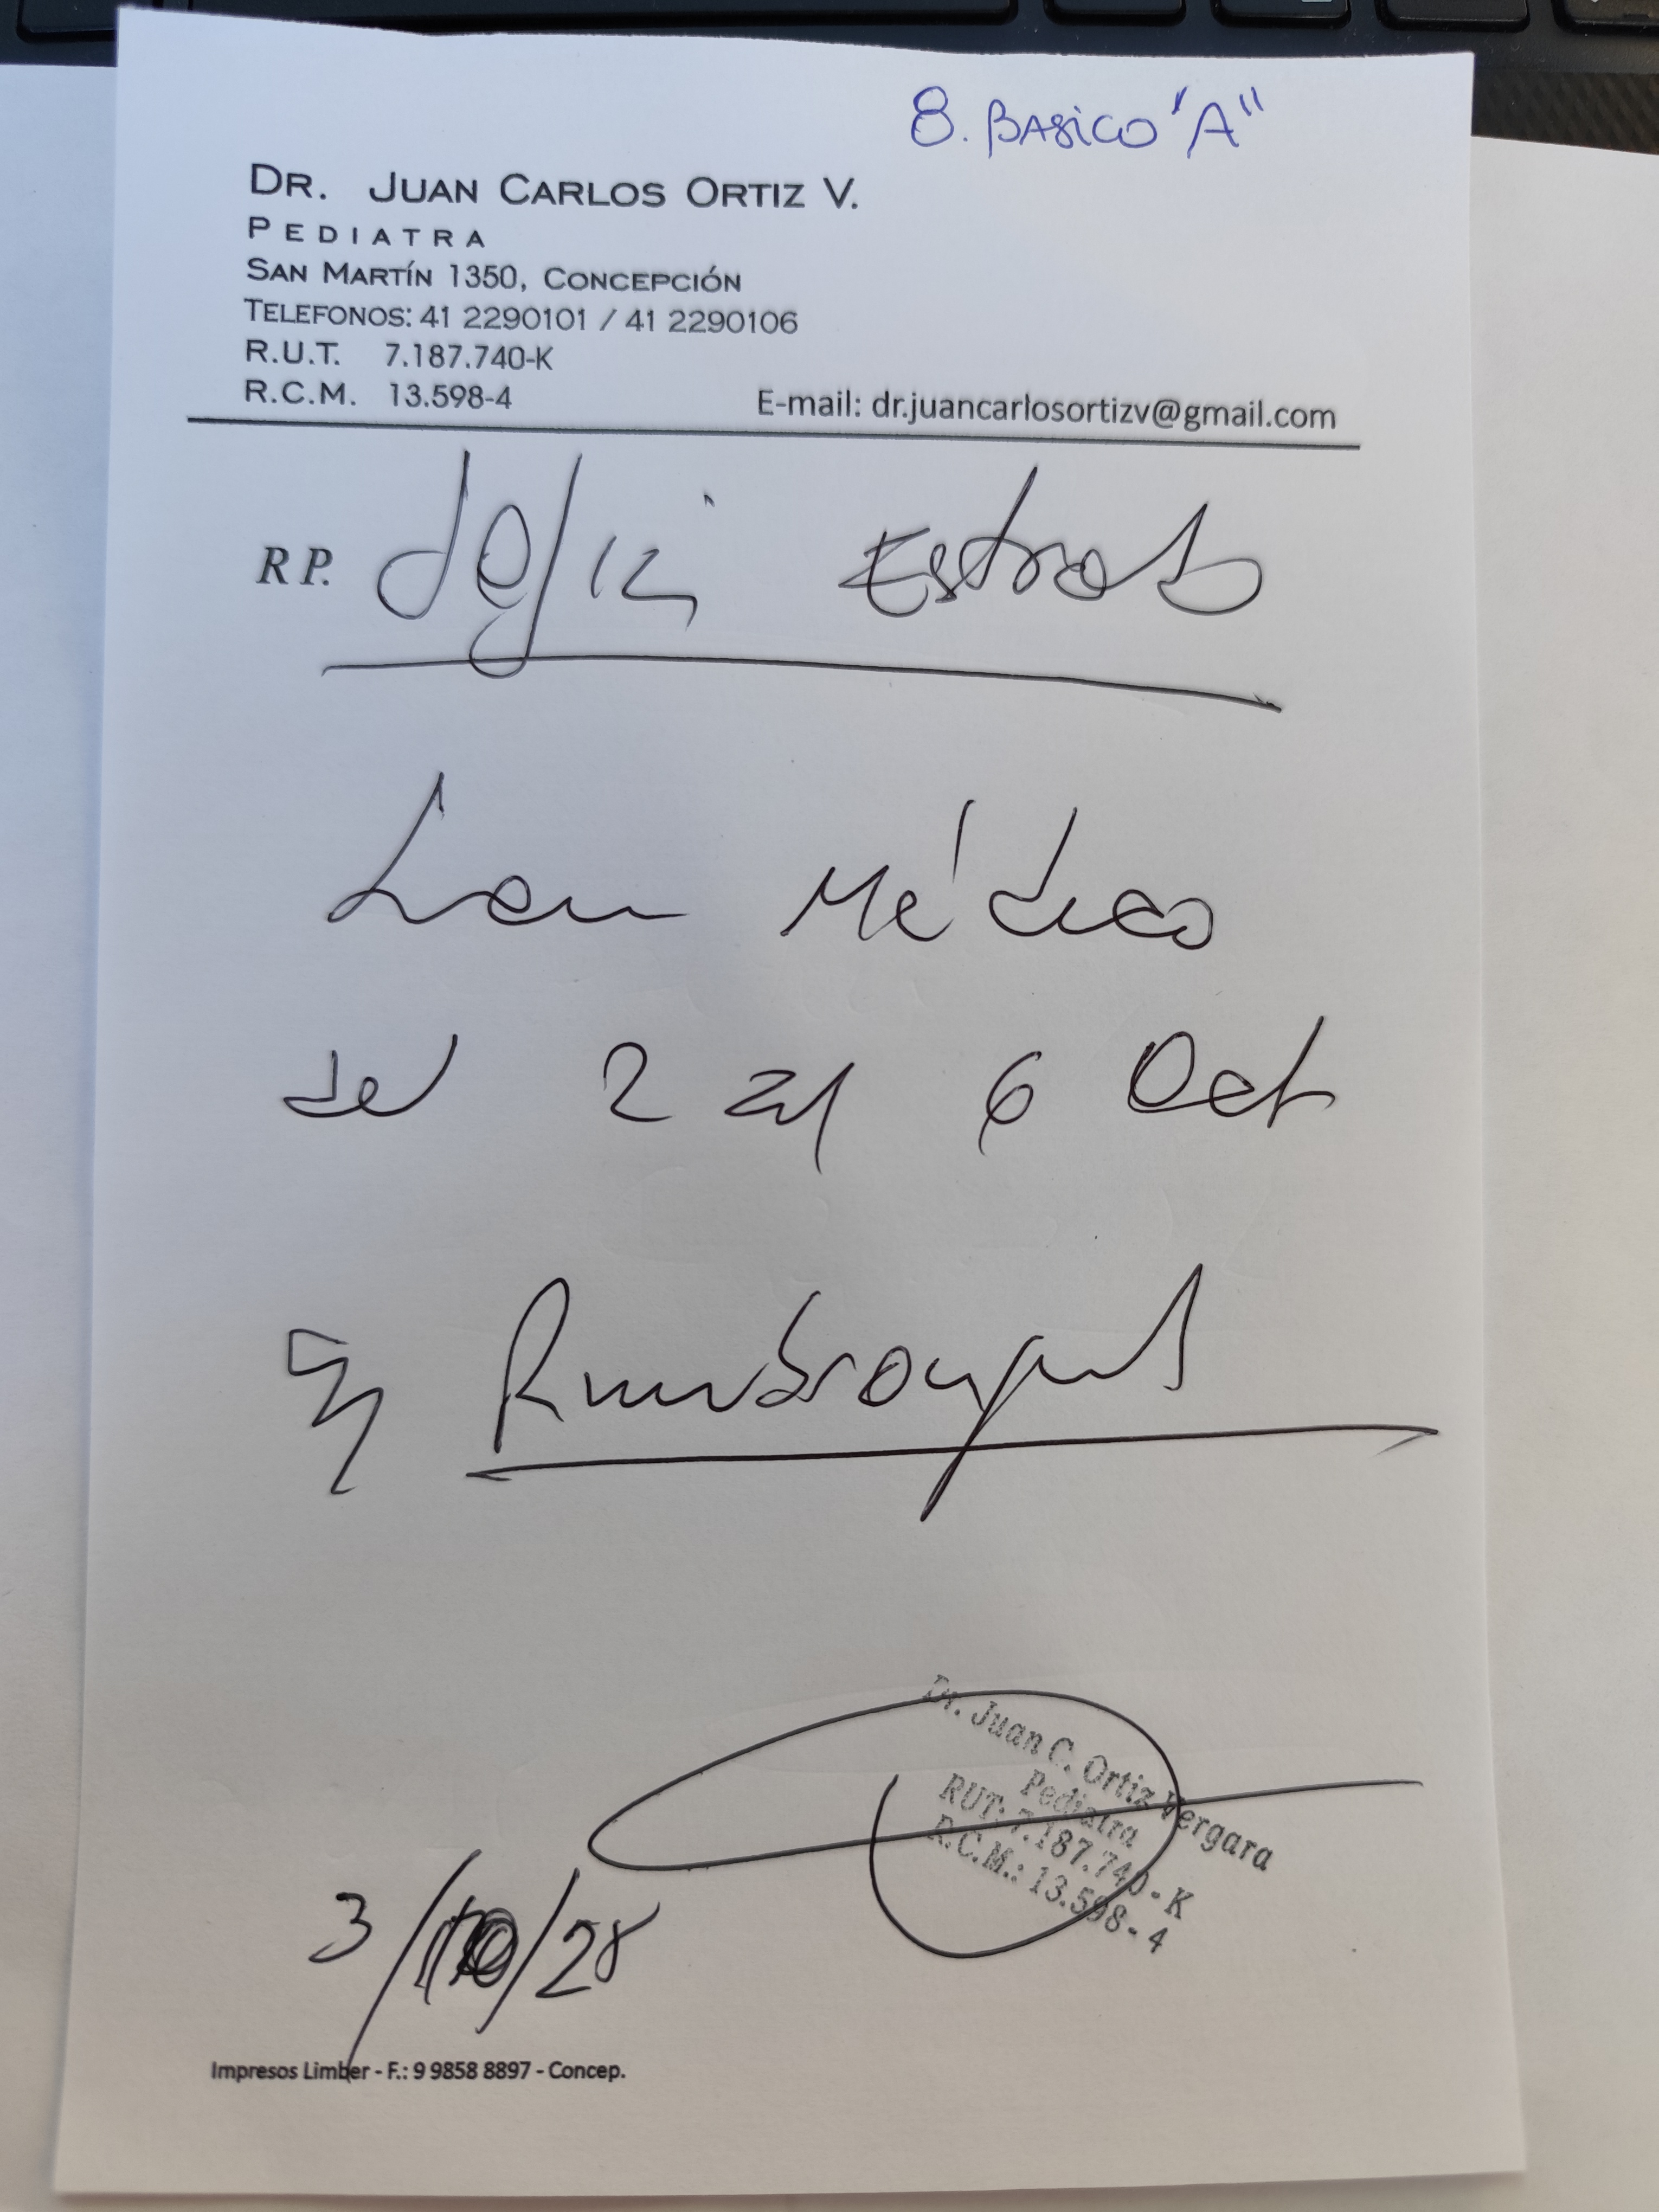 8. BASICO "A"
DR. JUAN CARLOS ORTIZ V.
PEDIATRA
SAN MARTÍN 1350, CONCEPCIÓN
TELEFONOS: 41 2290101 / 41 2290106
R.U.T. 7.187.740-K
R.C.M. 13.598-4
E-mail: dr.juancarlosortizv@gmail.com
RP.
Médico
del 2 al 6 Oct
3/10/28
Dr. Juan C. Ortiz Vergara
Pediatra
RUT: 7.187.740-K
R.C.M.: 13.598-4
Impresos Limber - F.: 9 9858 8897 - Concep.